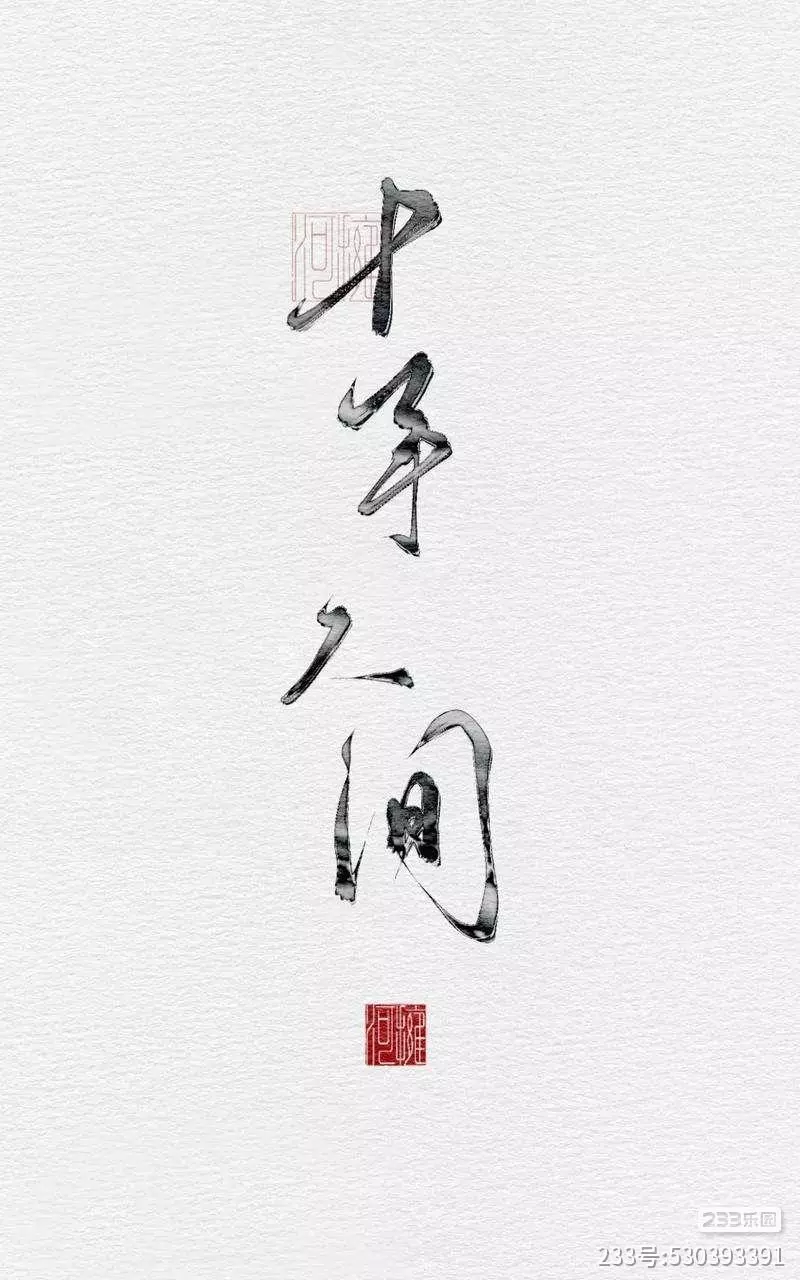 十年人间
233乐园
233号:530393391